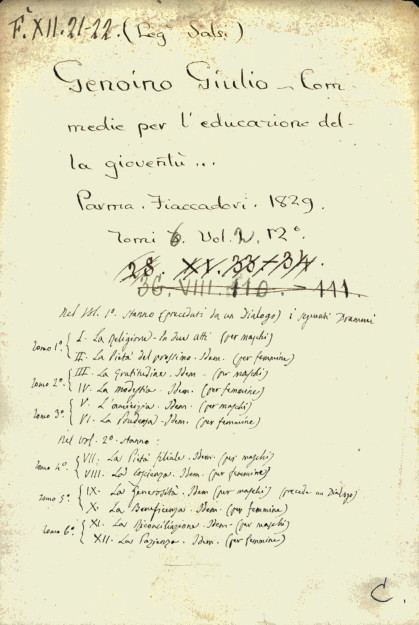 F. XII. 21-22. (Leg. Sals.)
Genoino Giulio — Com-
medie per l'educazione del-
la gioventù...
Parma. Fiaccadori. 1829.
Tomi 6. Vol. 2. 12°.
28. XV. 33+34.
36. VIII. 110. - 111.
Nel Vol. 1°. stanno (preceduti da un Dialogo) i seguenti Drammi
Tomo 1°. { I. La Religione - In due atti (per maschi)
II. La Pietà del prossimo. Idem. (per femmine)
Tomo 2°. { III. La Gratitudine. Idem - (per maschi)
IV. La modestia - Idem. (per femmine)
Tomo 3°. { V. L'amicizia. Idem. (per maschi)
VI. La Prudenza - Idem. (per femmine)
Nel vol. 2° stanno :
Tomo 4°. { VII. La Pietà filiale. Idem. (per maschi)
VIII. La Coscienza. Idem. (per femmine)
Tomo 5°. { IX. La Generosità. Idem (per maschi) (precede un Dialogo)
X. La Beneficenza. Idem. (per femmine)
Tomo 6°. { XI. La Riconciliazione. Idem. (per maschi)
XII. La Pazienza. Idem. (per femmine)
C.